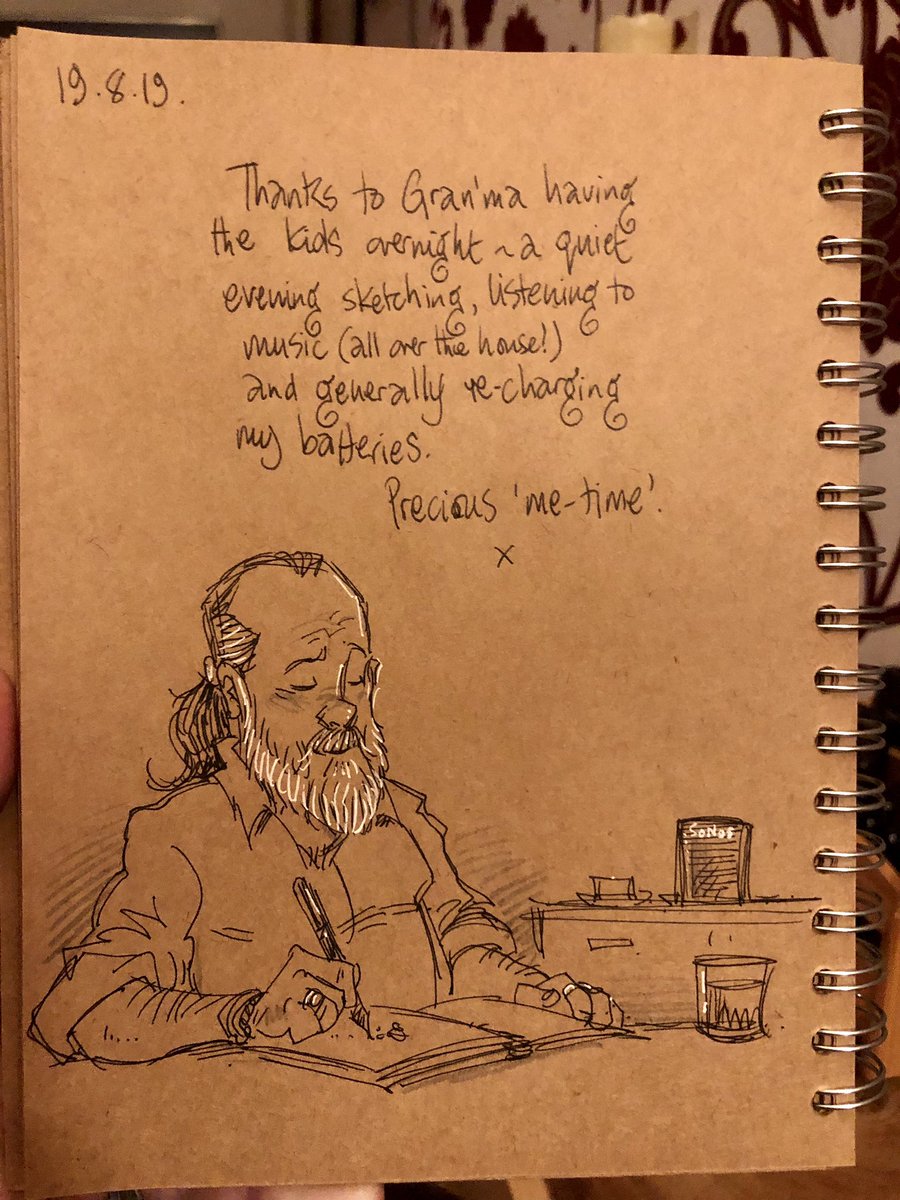 19.8.19.
Thanks to Gran'ma having
the kids overnight ~ a quiet
evening sketching, listening to
music (all over the house!)
and generally re-charging
my batteries.
Precious 'me-time'.
x
SONOS